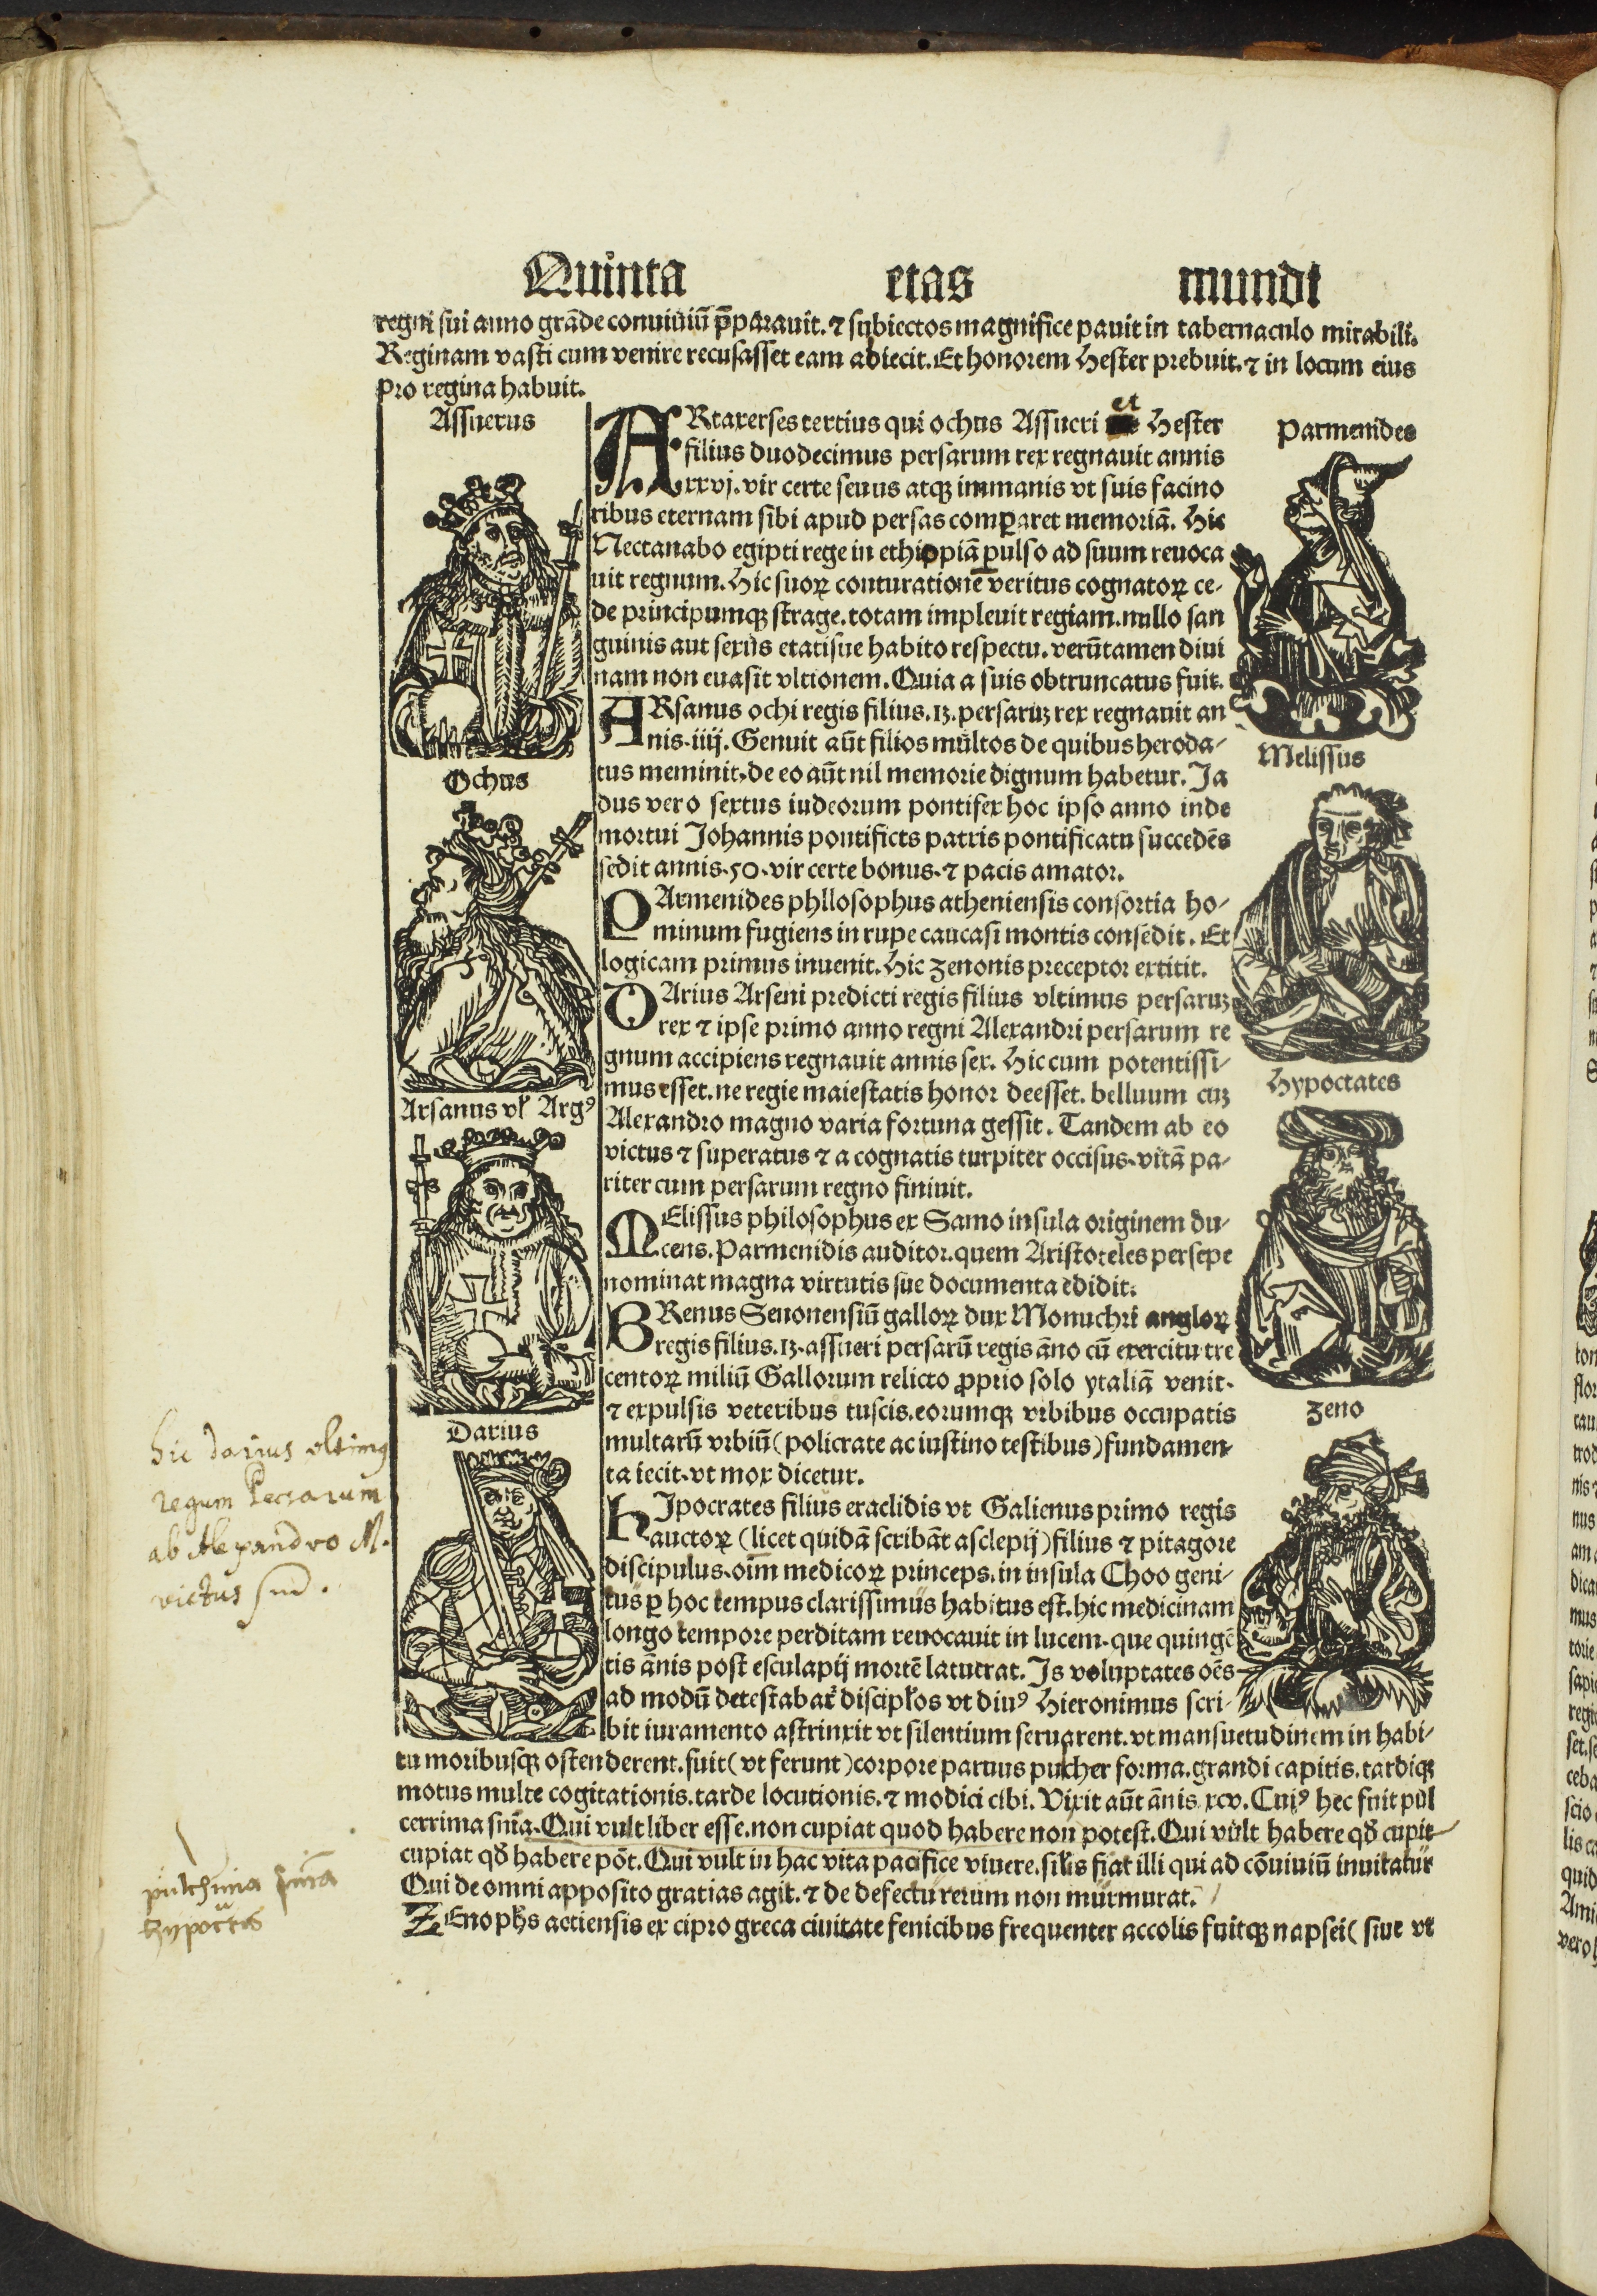 Quinta etas mundi
regni sui anno grãde conuiuiũ p̄parauit. ⁊ subiectos magnifice pauit in tabernaculo mirabili.
Reginam vasti cum venire recusasset eam abiecit. Et honorem Hester prebuit. ⁊ in locum eius
pro regina habuit.
Assuerus
Ochus
Arsanus vł Argꝰ
Darius
et
ARtaxerses tertius qui ochus Assueri Hester
filius duodecimus persarum rex regnauit annis
xxvj. vir certe seuus atqꝫ immanis vt suis facino
ribus eternam sibi apud persas compararet memoriã. Hic
Nectanabo egipti rege in ethiopiã pulso ad suum reuoca
uit regnum. Hic suoꝝ conturationẽ veritus cognatoꝝ ce-
de principumqꝫ strage. totam impleuit regiam. nullo san
guinis aut sexus etatisue habito respectu. verũtamen diui
nam non euasit vltionem. Quia a suis obtruncatus fuit.
ARsanus ochi regis filius. 13. persaruꝫ rex regnauit an
nis. iiij. Genuit aũt filios multos de quibus heroda-
tus meminit. de eo aũt nil memorie dignum habetur. Ja
dus vero sextus iudeorum pontifex hoc ipso anno inde
mortui Johannis pontificts patris pontificatu succedẽs
sedit annis. 50. vir certe bonus. ⁊ pacis amator.
PArmenides phllosophus atheniensis consortia ho-
minum fugiens in rupe caucasi montis consedit. Et
logicam primus inuenit. Hic zenonis preceptor extitit.
DArius Arseni predicti regis filius vltimus persaruꝫ
rex ⁊ ipse primo anno regni Alexandri persarum re
gnum accipiens regnauit annis sex. Hic cum potentissi-
mus esset. ne regie maiestatis honor deesset. belluum cuꝫ
Alexandro magno varia fortuna gessit. Tandem ab eo
victus ⁊ superatus ⁊ a cognatis turpiter occisus. vitã pa-
riter cum persarum regno finiuit.
MElissus philosophus ex Samo insula originem du-
cens. Parmenidis auditor. quem Aristoteles persepe
nominat magna virtutis sue documenta edidit.
BRenus Senonensiũ galloꝝ dux Monuchri angloꝝ
regis filius. 13. assueri persarũ regis ãno cũ exercitu tre
centoꝝ miliũ Gallorum relicto ꝓprio solo ytaliã venit.
⁊ expulsis veteribus tuscis. eorumqꝫ vrbibus occupatis
multarũ vrbiũ (policrate ac iustino testibus) fundamen-
ta iecit. vt mox dicetur.
HIpocrates filius eraclidis vt Galienus primo regis
auctoꝝ (licet quidã scribãt asclepij) filius ⁊ pitagore
discipulus. oim̃ medicoꝝ princeps. in insula Choo geni-
tus ꝑ hoc tempus clarissimus habitus est. hic medicinam
longo tempore perditam reuocauit in lucem. que quingẽ
tis ãnis post esculapij mortẽ latuerat. Is voluptates oẽs
ad modũ detestabat̃ discipłos vt diuꝰ Hieronimus scri-
bit iuramento astrinxit vt silentium seruarent. vt mansuetudinem in habi-
tu moribusqꝫ ostenderent. fuit (vt ferunt) corpore paruus pulcher forma. grandi capitis. tardiqꝫ
motus multe cogitationis. tarde locutionis. ⁊ modici cibi. Vixit aũt ãnis. xcv. Cuiꝰ hec fuit pul
cerrima snĩa. Qui vult liber esse. non cupiat quod habere non potest. Qui vult habere qđ cupit
cupiat qđ habere põt. Qui vult in hac vita pacifice viuere. siłis fiat illi qui ad cõuiuiũ inuitatur
Qui de omni apposito gratias agit. ⁊ de defectu rerum non murmurat.
ZEno phs̃ actiensis ex cipro greca ciuitate fenicibus frequenter accolis fuitqꝫ napsei (siue vt
Parmenides
Melissus
Hypoctates
Zeno
hic darius vltimꝰ
regum Persarum
ab Alexandro M.
victus
pulcherrima